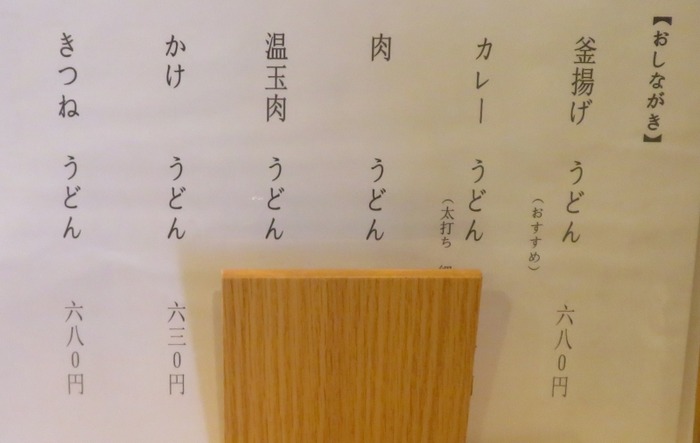 【おしながき】
釜揚げ うどん 六八０円
（おすすめ）
カレー うどん
（太打ち
肉 うどん
温玉肉 うどん
かけ うどん 六三０円
きつね うどん 六八０円